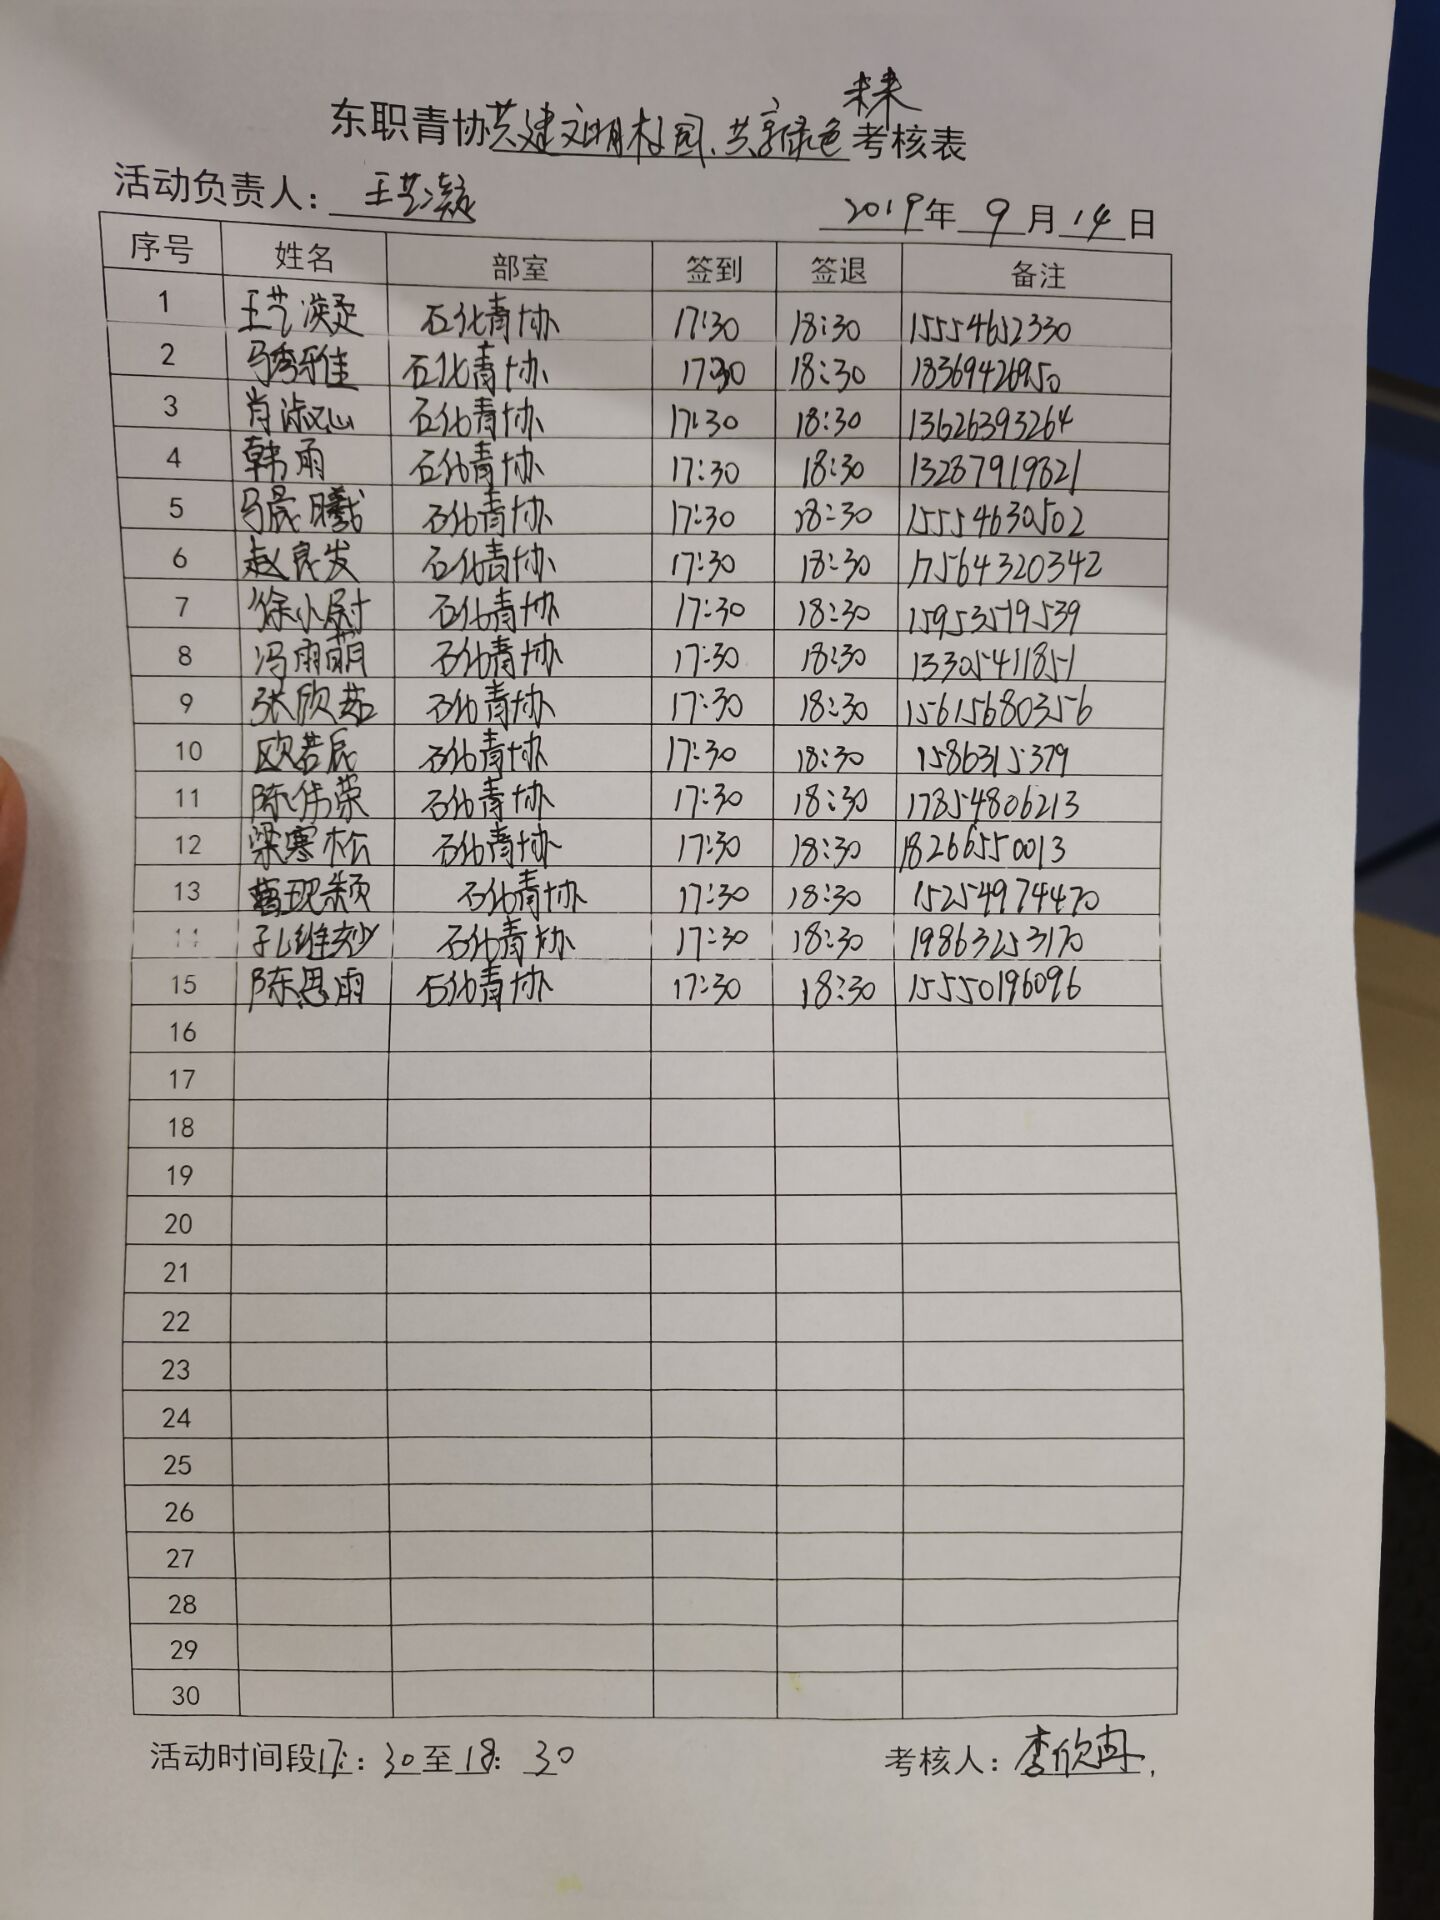 未来
东职青协共建文明校园、共享绿色考核表
活动负责人：王艺凝 2019年9月14日
序号 姓名 部室 签到 签退 备注
1 王艺凝 石化青协 17:30 18:30 15554652330
2 马秀雅佳 石化青协 17:30 18:30 18369426950
3 肖淑心 石化青协 17:30 18:30 13626393264
4 韩雨 石化青协 17:30 18:30 13287919821
5 马晨曦 石化青协 17:30 18:30 15554630502
6 赵良发 石化青协 17:30 18:30 17564320342
7 徐小尉 石化青协 17:30 18:30 15953519539
8 冯雨萌 石化青协 17:30 18:30 13305411851
9 张欣茹 石化青协 17:30 18:30 15615680356
10 欧若辰 石化青协 17:30 18:30 1586315379
11 陈伟荣 石化青协 17:30 18:30 17854806213
12 梁寒松 石化青协 17:30 18:30 18266550013
13 曹现颖 石化青协 17:30 18:30 15254974470
14 孔维 石化青协 17:30 18:30 19863253170
15 陈思雨 石化青协 17:30 18:30 15550196096
16
17
18
19
20
21
22
23
24
25
26
27
28
29
30
活动时间段17：30至18：30 考核人：李欣冉